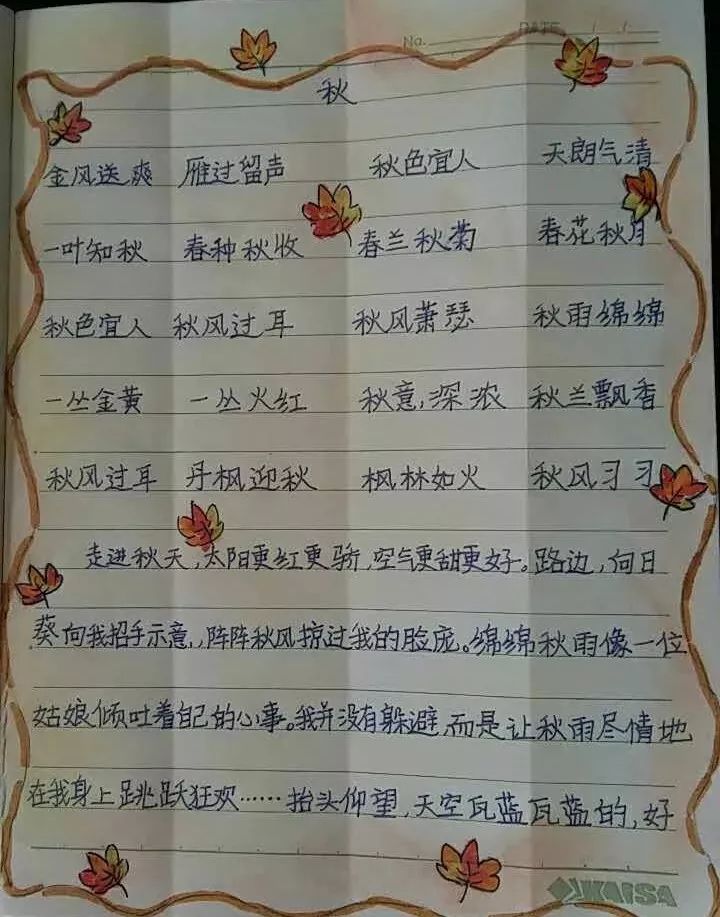 No. DATE / /
秋
金风送爽 雁过留声 秋色宜人 天朗气清
一叶知秋 春种秋收 春兰秋菊 春花秋月
秋色宜人 秋风过耳 秋风萧瑟 秋雨绵绵
一丛金黄 一丛火红 秋意,深浓 秋兰飘香
秋风过耳 丹枫迎秋 枫林如火 秋风习习
走进秋天,太阳更红更骄,空气更甜更好。路边,向日
葵向我招手示意,阵阵秋风掠过我的脸庞。绵绵秋雨像一位
姑娘倾吐着自己的心事。我并没有躲避,而是让秋雨尽情地
在我身上跳跃狂欢……抬头仰望,天空瓦蓝瓦蓝的,好
KAISA